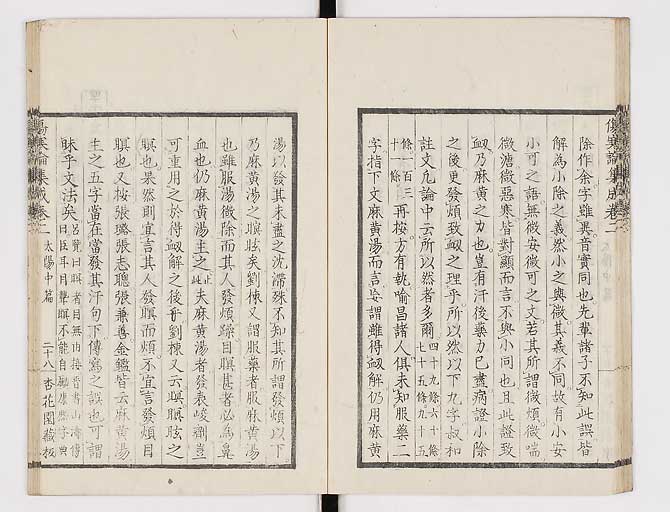 傷寒論集成卷二
除作余字雖異音實同也先輩諸子不知此誤皆
解為小除之義然小之與微其義不同故有小安
小可之語無微安微可之文若其所謂微煩微喘
微溏微惡寒皆對顯而言不與小同也且此證致
衂乃麻黃之力也豈有汗後藥力已盡病證小除
之後更發煩致衂之理乎所以然以下九字叔和
註文凢論中云所以然者多爾四十九條六十條
七十五條九十五
條一百三
十一條再按方有執喻昌諸人俱未知服藥二
字指下文麻黃湯而言妄謂雖得衂解仍用麻黃
湯以發其未盡之沈滯殊不知其所謂發煩以下
乃麻黃湯之瞑眩矣劉棟又謂服藥者服麻黃湯
也雖服湯微除而其人發煩躁目瞑甚者必為鼻
血也仍麻黃湯主之止此夫麻黃湯者發表峻劑豈
可重用之於得衂解之後乎劉棟又云瞑瞑眩之
瞑也果然則宜言其人發瞑而煩不宜言發煩目
瞑也又按張璐張志聰張兼善金鑑皆云麻黃湯
主之五字當在當發其汗句下傳寫之誤也可謂
昧乎文法矣
傷寒論集成卷二
太陽中篇
二十八
杏花園藏板